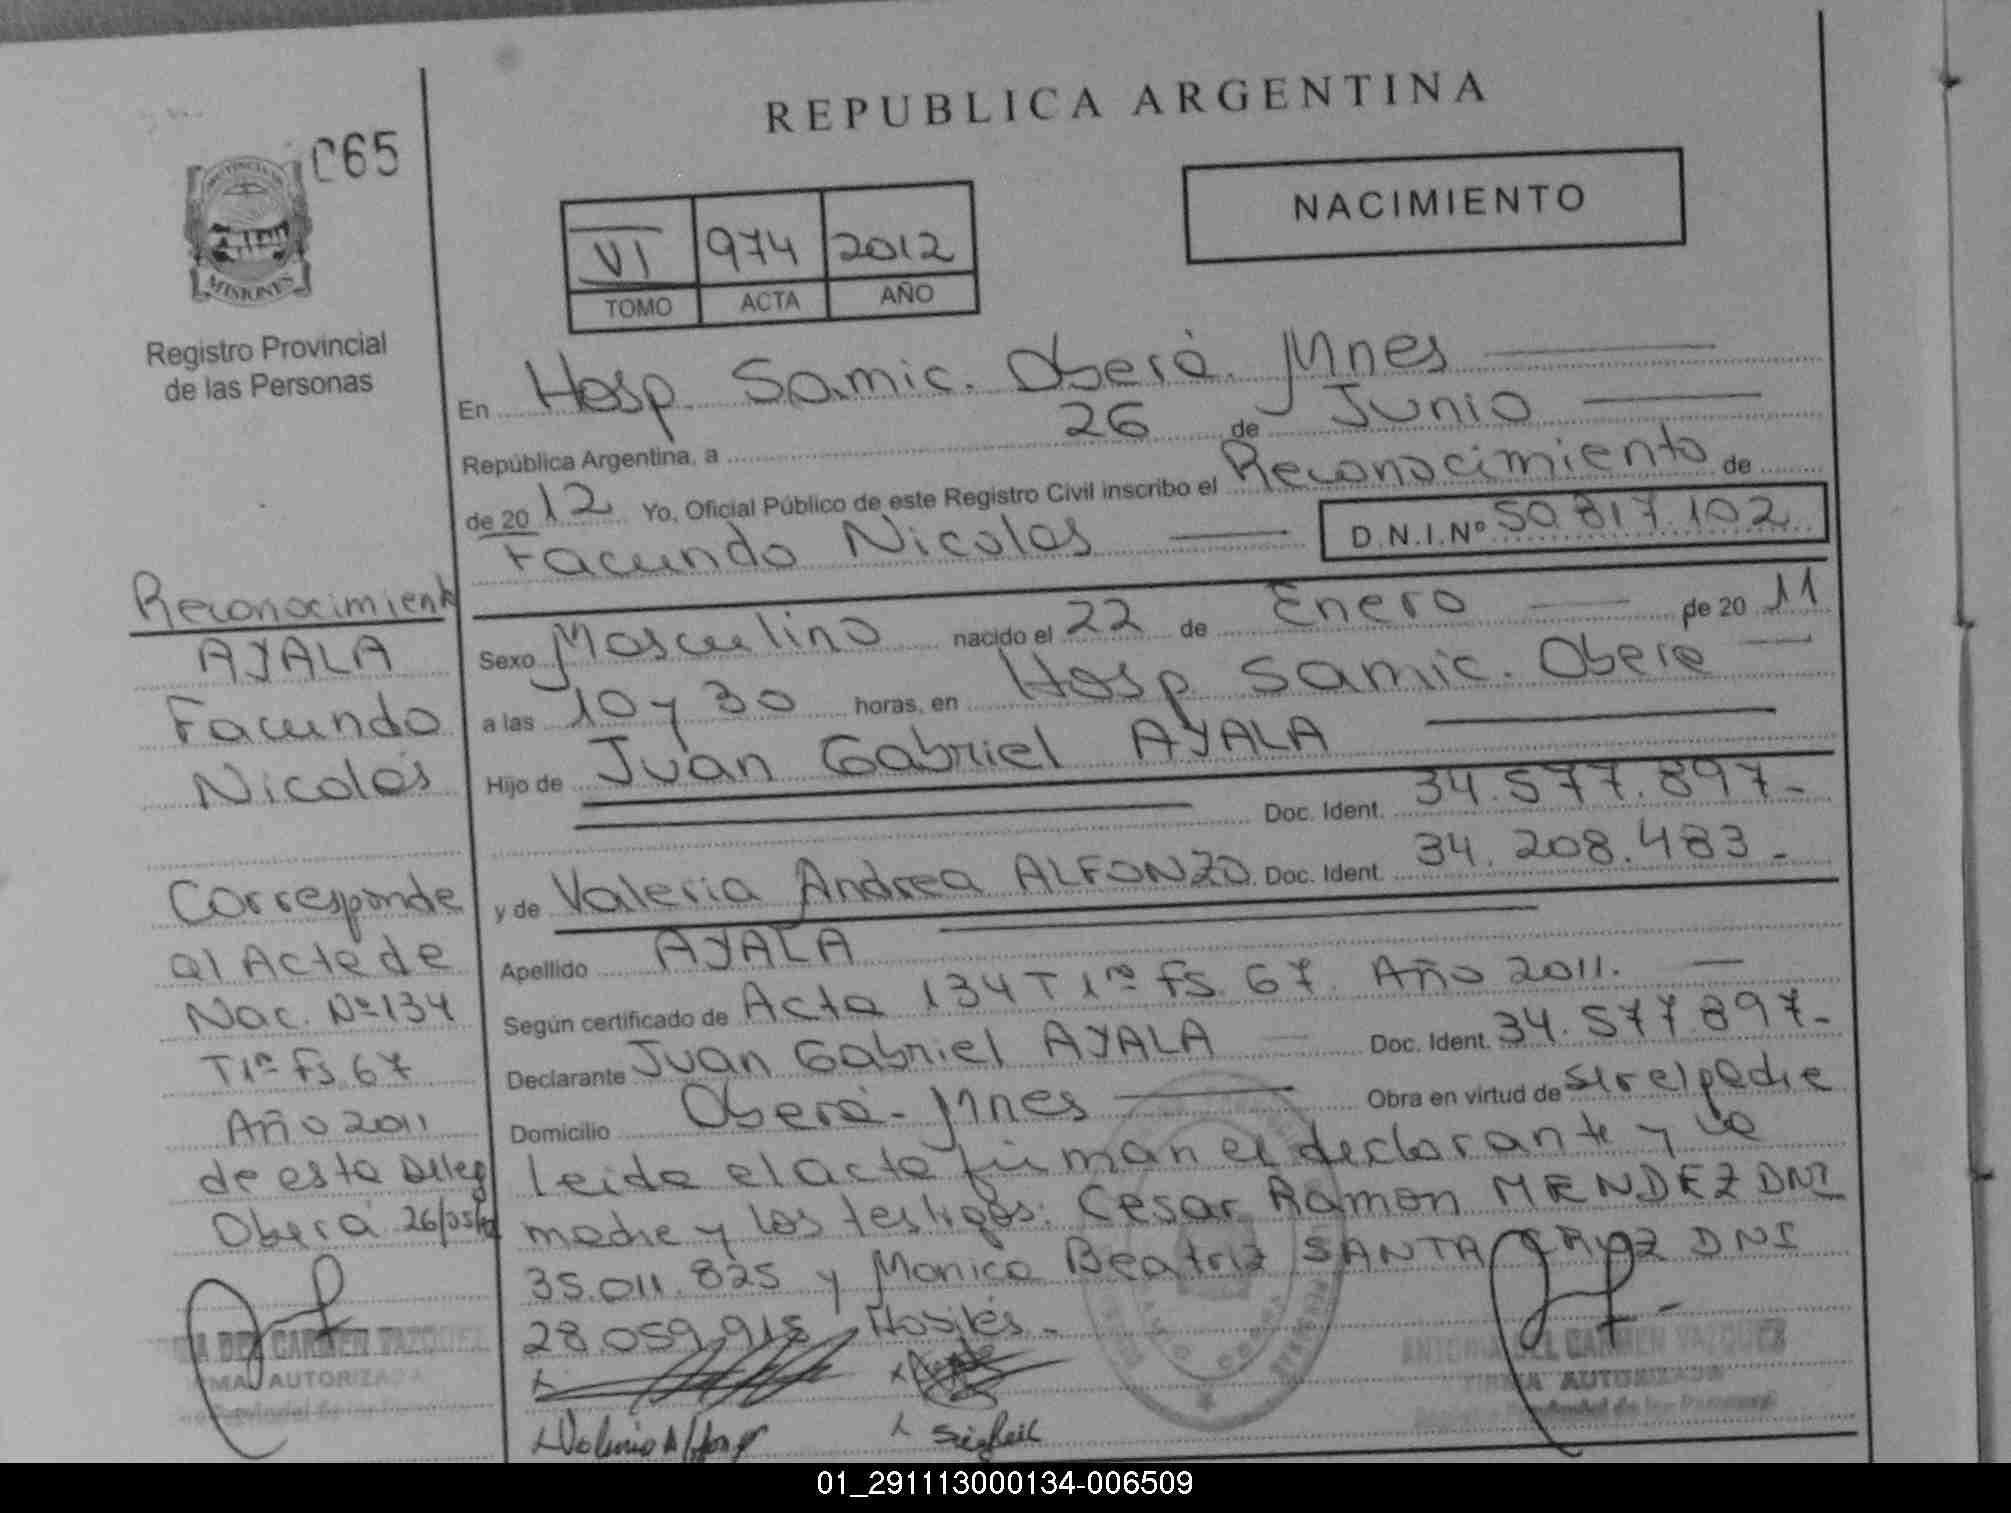 REPUBLICA ARGENTINA
065
MISIONES
Registro Provincial
de las Personas
NACIMIENTO
VI 974 2012
TOMO ACTA AÑO
En Hosp. Samic. Oberá. Mnes
República Argentina, a 26 de Junio
de 20 12 Yo, Oficial Público de este Registro Civil inscribo el Reconocimiento de
Facundo Nicolas D.N.I.Nº 50.817.102
Sexo Masculino nacido el 22 de Enero de 20 11
a las 10 y 30 horas, en Hosp. Samic. Obera
Hijo de Juan Gabriel AYALA
Doc. Ident. 34.577.897-
y de Valeria Andrea ALFONZO Doc. Ident. 34.208.483-
Apellido AYALA
Según certificado de Acta 134 T 1º Fs. 67. Año 2011.
Declarante Juan Gabriel AYALA Doc. Ident. 34.577.897-
Domicilio Oberá- Mnes Obra en virtud de ser el padre
Leida el acta firman el declarante y la
madre y los testigos: Cesar Ramon MENDEZ DNI
35.011.825 y Monica Beatriz SANTA CRUZ DNI
28.059.915
Reconocimiento
AYALA
Facundo
Nicolás
Corresponde
al Acta de
Nac. Nº 134
T 1º Fs. 67
Año 2011
de esta Deleg
Oberá 26/05/12
DEL CARMEN VAZQUEZ
FIRMA AUTORIZADA
ANTONIA DEL CARMEN VAZQUEZ
FIRMA AUTORIZADA
01_291113000134-006509